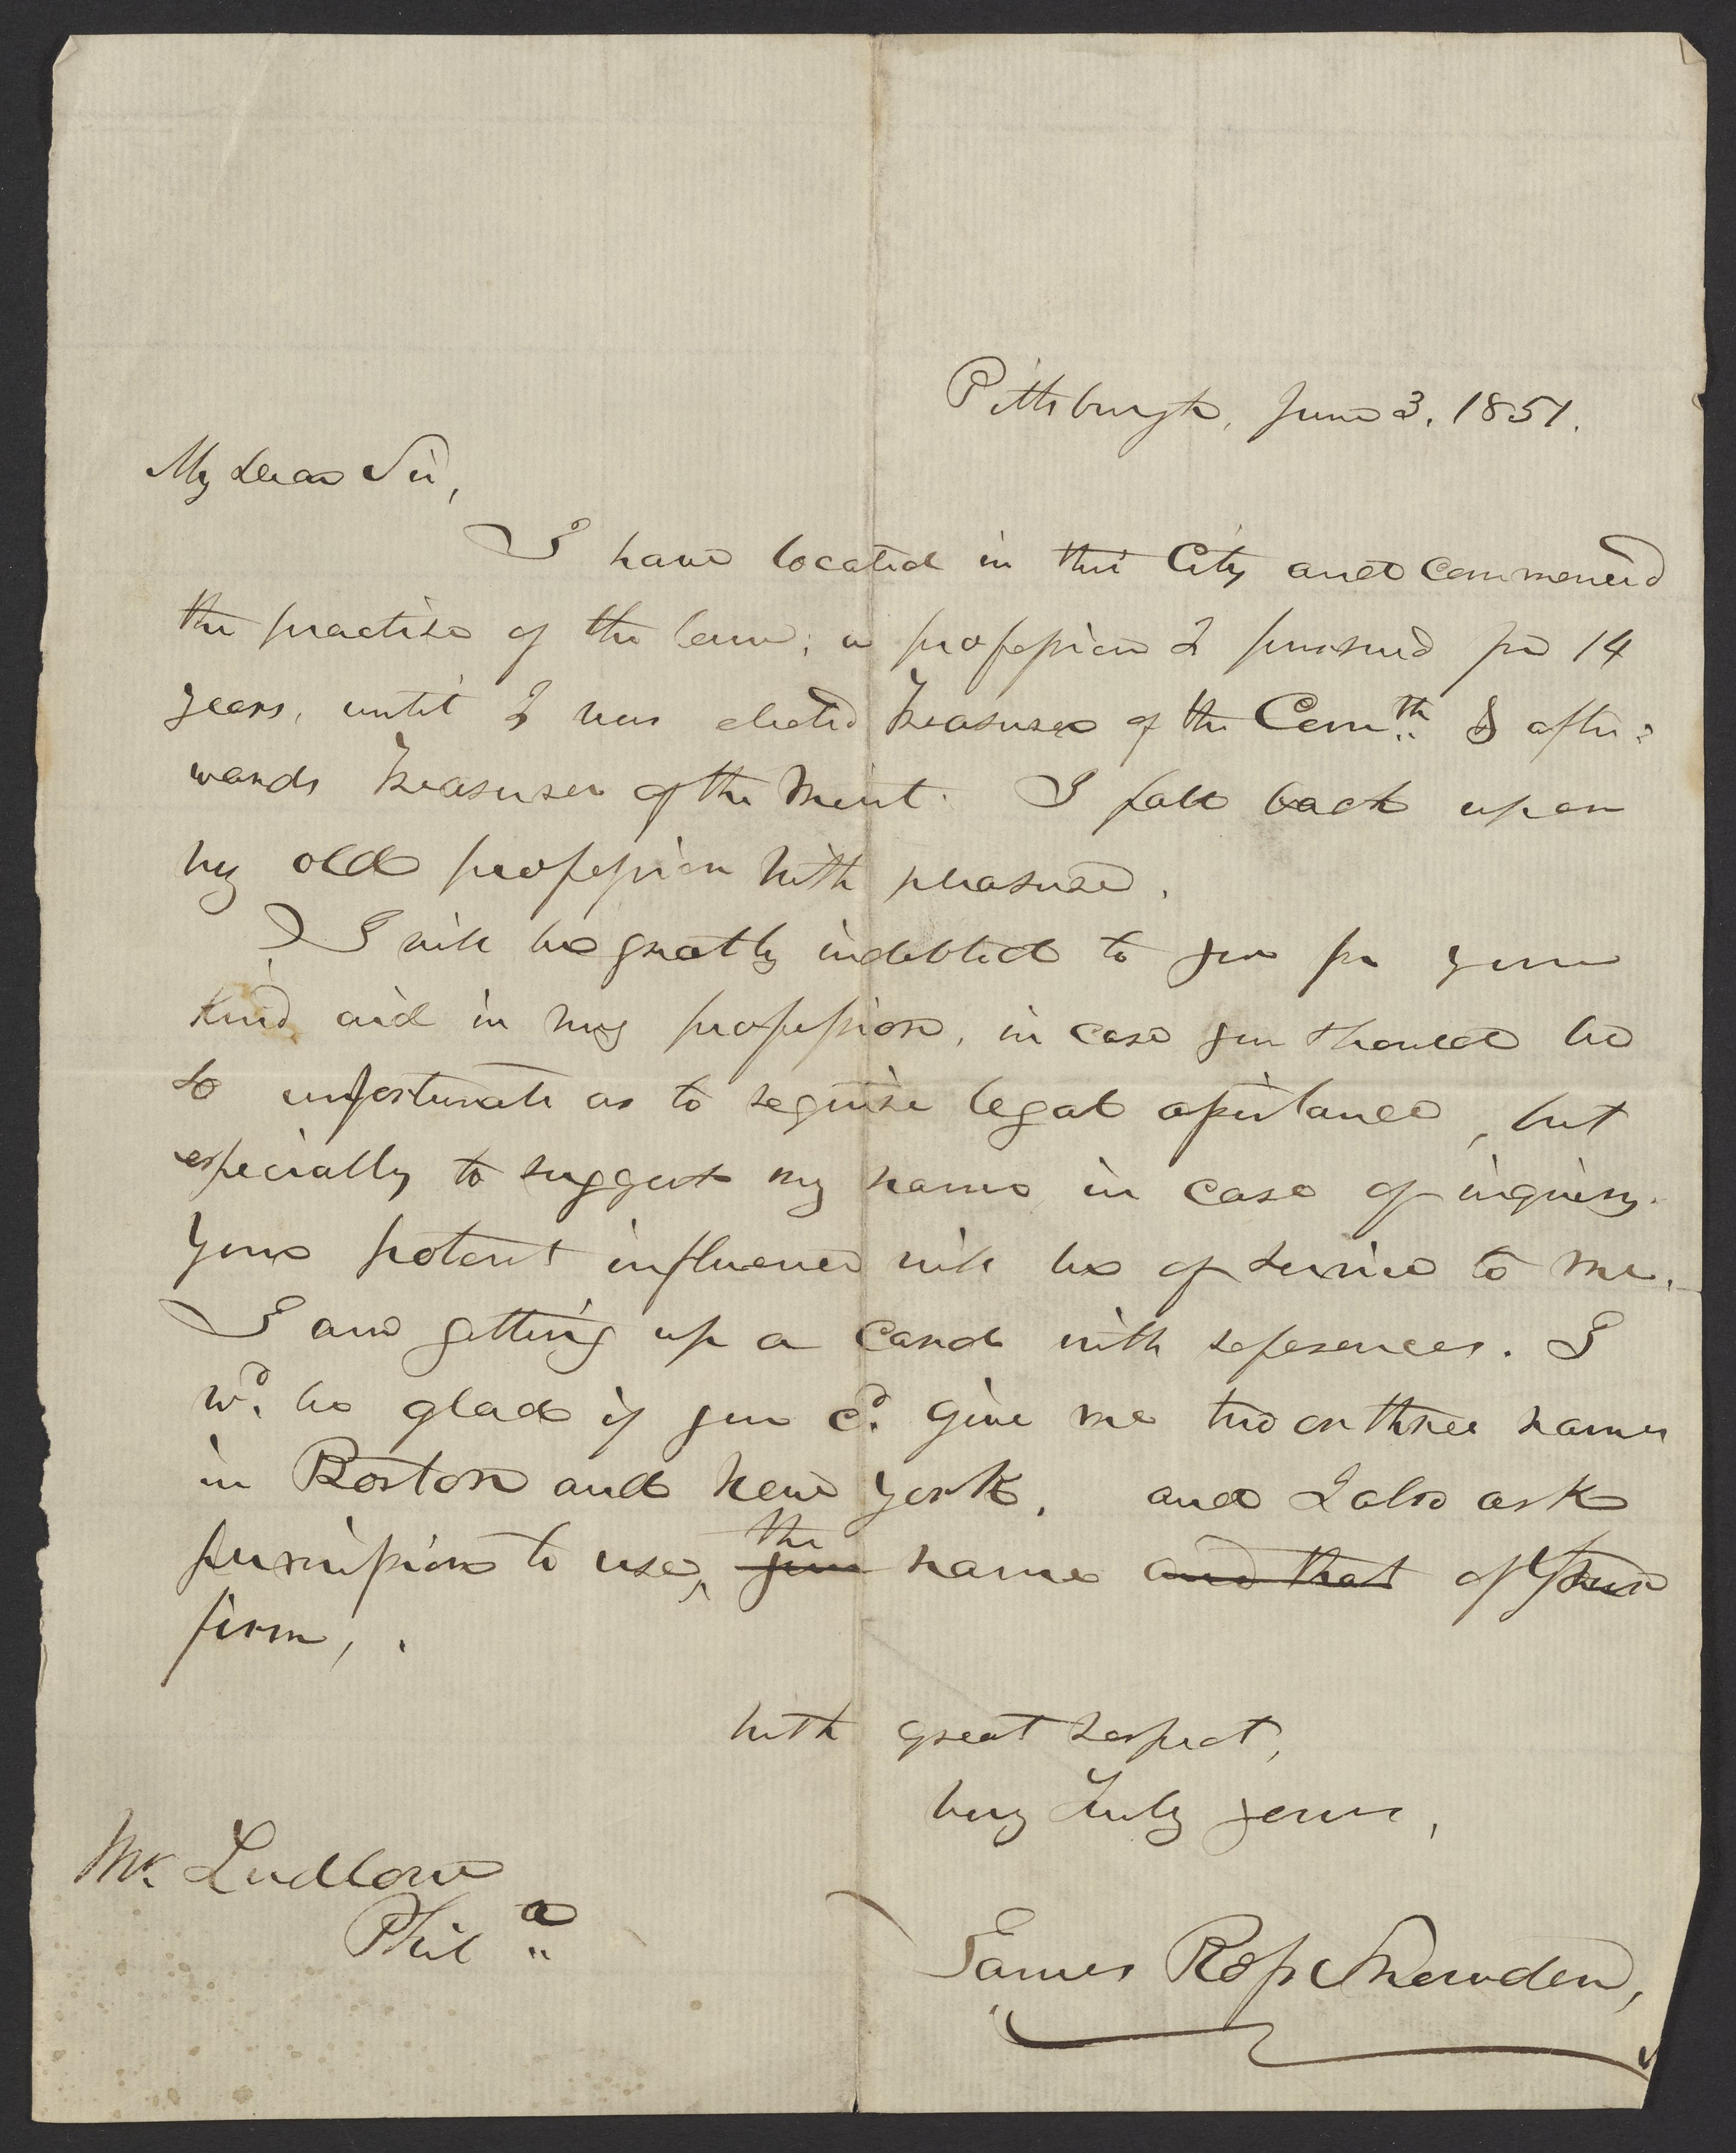 Pittsburgh, June 3. 1851.
My dear Sir,
I have located in this City and commenced
the practise of the law; a profession I pursued for 14
years, until I was elected Treasurer of the Comth. & after=
wards Treasurer of the Mint. I fall back upon
my old profession with pleasure.
I will be greatly indebted to you for your
kind aid in my profession, in case you should be
so unfortunate as to require legal assistance, but
especially to suggest my name in case of inquiry.
Your potent influence will be of service to me.
I am getting up a card with references. I
wd. be glad if you cd. give me two or three names
in Boston and New York. and I also ask
permission to use, the your name and that of your
firm, .
With great respect,
Very truly yours,
Mr. Ludlow
Phila
James Ross Snowden,